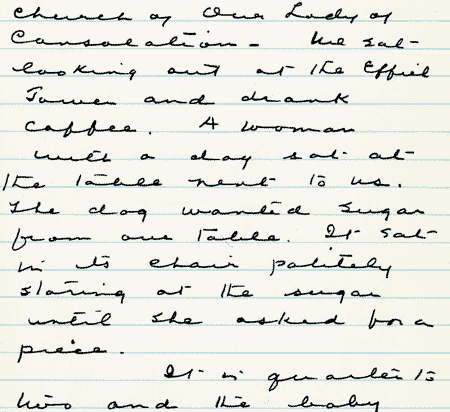 Church of Our Lady of
Consolation - We sat
looking out at the Effiel
Tower and drank
coffee. A woman
with a dog sat at
the table next to us.
The dog wanted sugar
from our table. It sat
in its chair politely
staring at the sugar
until she asked for a
piece.
It is quarter to
two and the baby